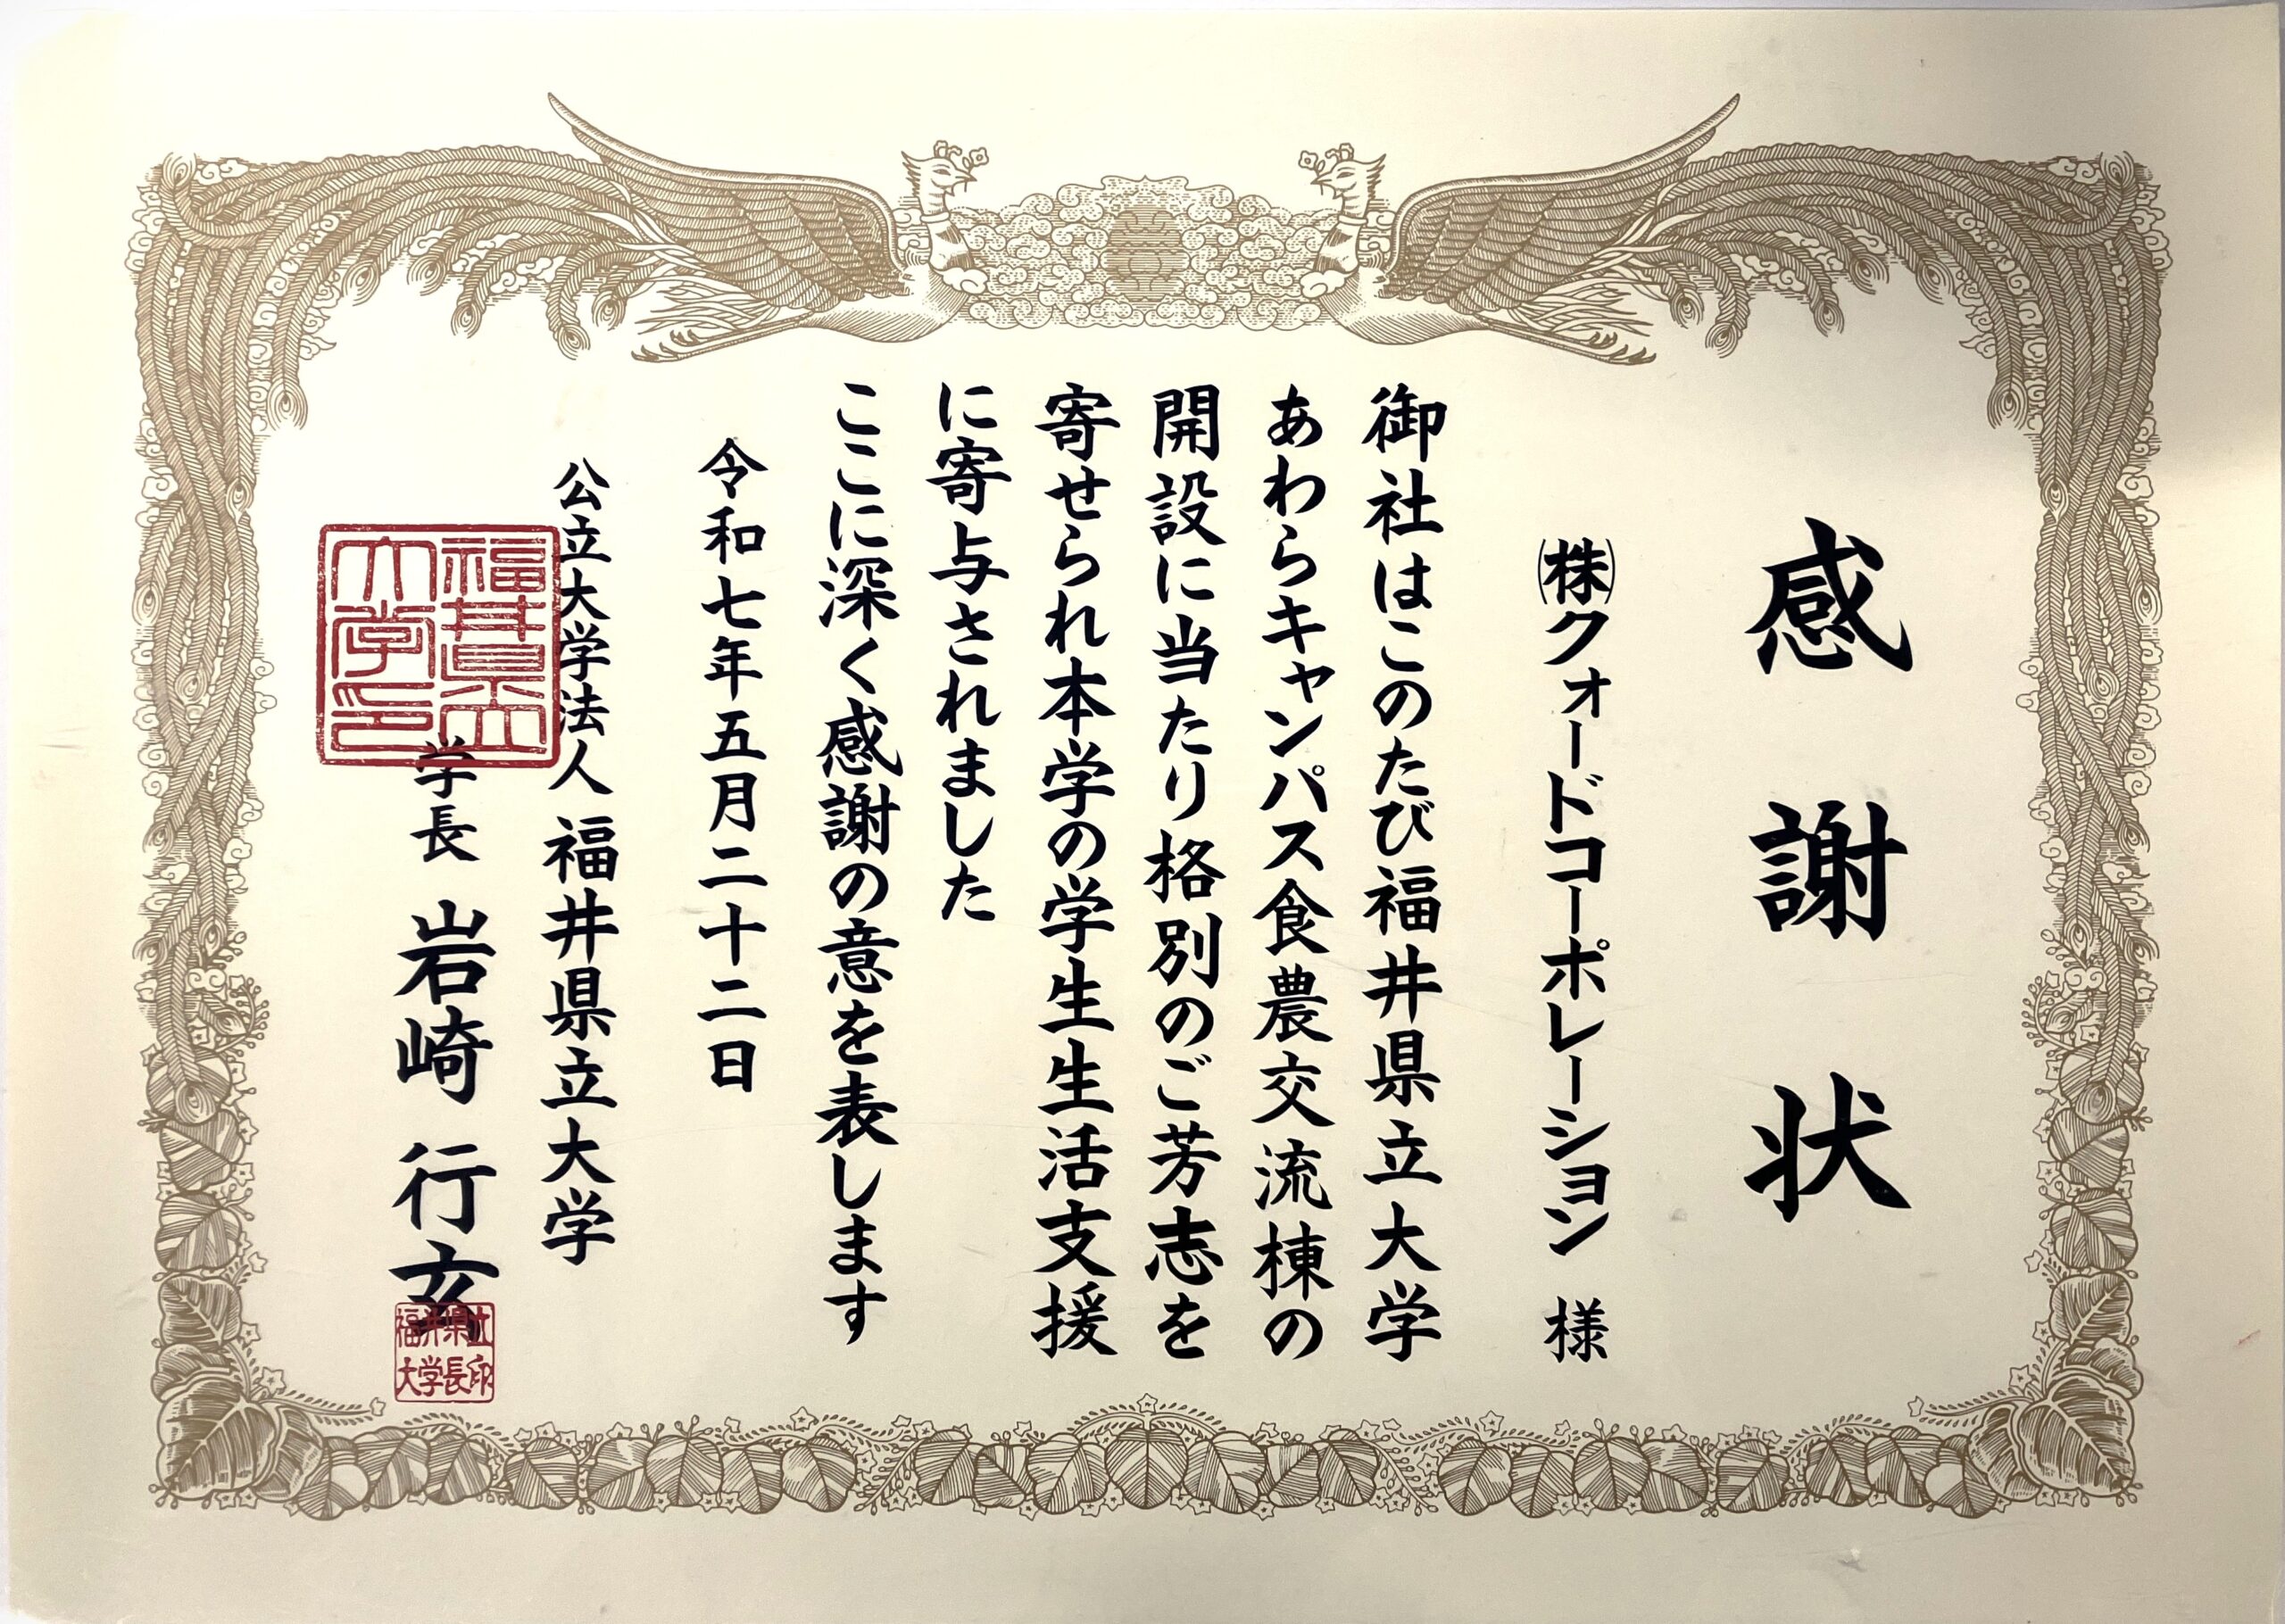 感謝状
㈱クォードコーポレーション 様
御社はこのたび福井県立大学
あわらキャンパス食農交流棟の
開設に当たり格別のご芳志を
寄せられ本学の学生生活支援
に寄与されました
ここに深く感謝の意を表します
令和七年五月二十二日
公立大学法人 福井県立大学
学長 岩崎行玄
福井縣立大学印
福井県立大学長印